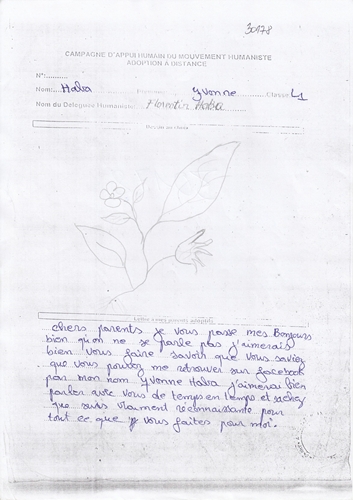 30178
CAMPAGNE D'APPUI HUMAIN DU MOUVEMENT HUMANISTE
ADOPTION A DISTANCE
N°:..........
Nom:....Haba..........Prénoms:........Yvonne............Classe:L1
Nom du Délégué Humaniste:....Florentin Haba
Lettre à mes parents adoptifs
chers parents je vous passe mes Bonjours
bien qu'on ne se parle pas j'aimerais
bien vous faire savoir que vous saviez
que vous pouvez me retrouver sur facebook
par mon nom Yvonne Haba j'aimerai bien
parler avec vous de temps en temps et sachez
que suis vraiment reconnaissante pour
tout ce que vous faites pour moi.